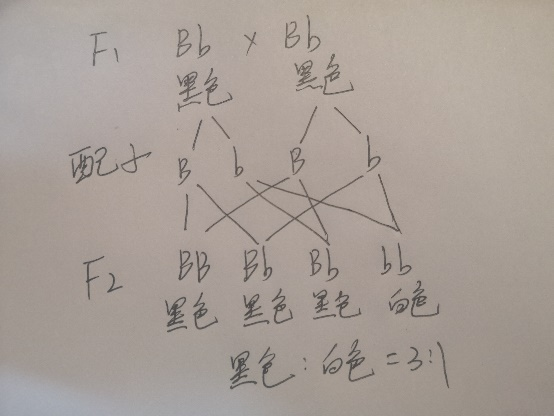 F₁ Bb × Bb
黑色 黑色
配子 B b B b
F₂ BB Bb Bb bb
黑色 黑色 黑色 白色
黑色:白色=3:1